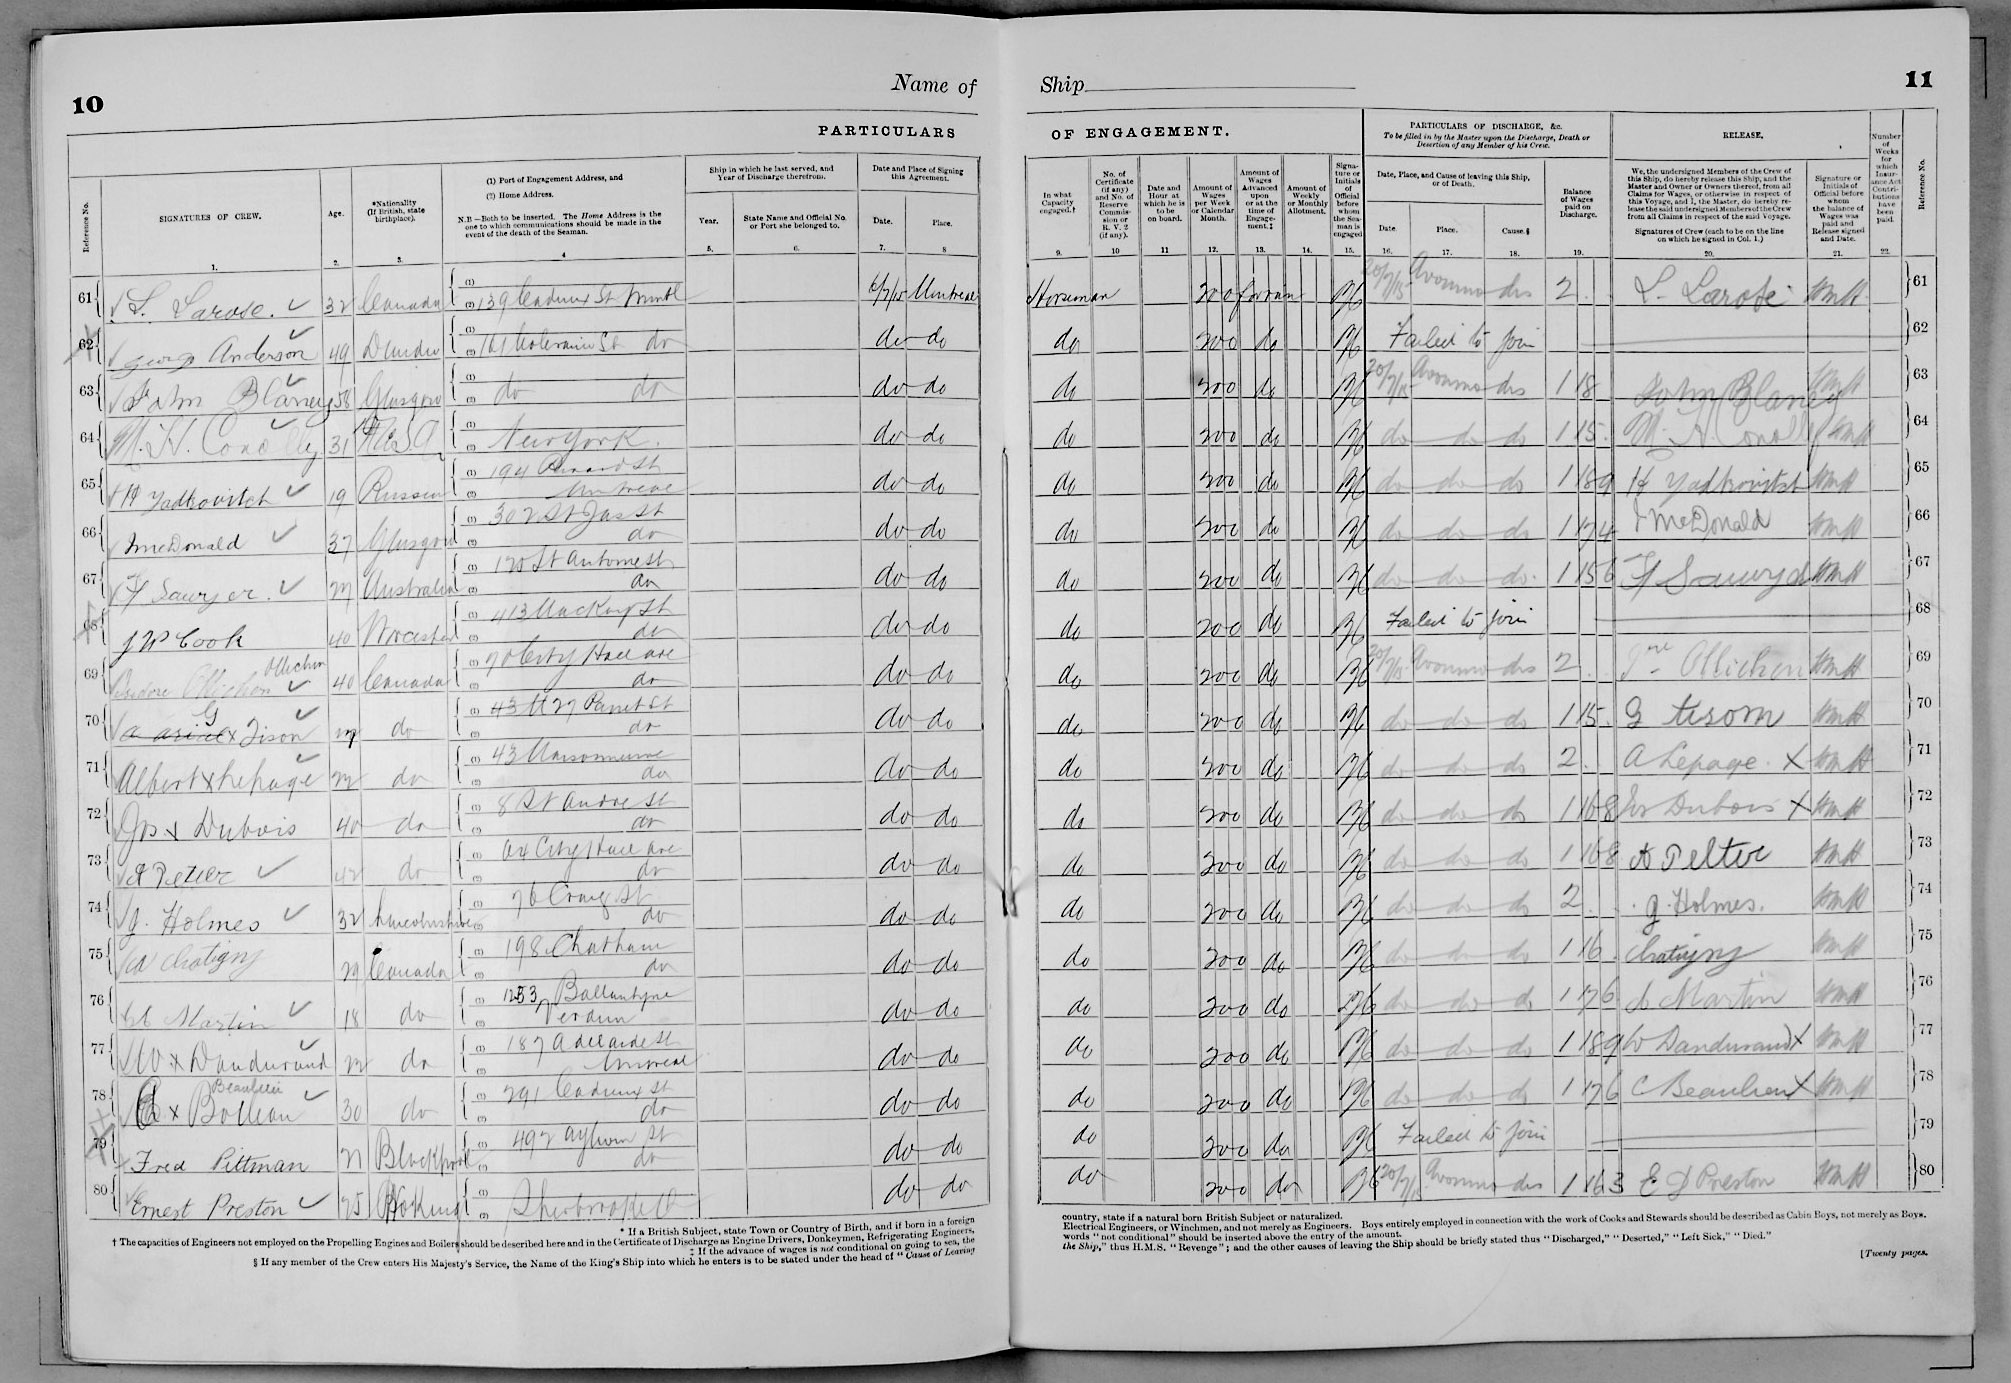 10
Name of
PARTICULARS
Reference No.
SIGNATURES OF CREW.
Age.
*Nationality (If British, state birthplace).
(1) Port of Engagement Address, and
(2) Home Address.
N.B.—Both to be inserted. The Home Address is the one to which communications should be made in the event of the death of the Seaman.
Ship in which he last served, and Year of Discharge therefrom.
Year.
State Name and Official No. or Port she belonged to.
Date and Place of Signing this Agreement.
Date.
Place.
1. 2. 3. 4 5. 6. 7. 8
61 L. Larose. 32 Canada 139 Cadieux St Montl Montreal
62 George Anderson 49 Dundee St do do do
63 John Blaney 58 Glasgow do do do do
64 M. H. Conolly 31 U.S.A New York. do do
65 H Yadkovitch 19 Russia 194 St Montreal do do
66 J McDonald 37 Glasgow 302 St Jas St do do do
67 F Sawyer. 27 Australia 120 St Antoine St do do do
68 J W Cook 40 Worcester 413 Mackay St do do do
69 Isidore Ollichon Ollichon 40 Canada 70 City Hall ave do do do
70 G x Tison do do do do
71 Albert x Lepage 22 do 43 do do do
72 Jos x Dubois 40 do 8 St Andre St do do do
73 A Peltier 42 do City Hall ave do do do
74 J. Holmes 32 Lincolnshire 76 Craig St do do do
75 Chatigny 29 Canada 198 Chatham do do do
76 Martin 18 do 1253 Ballantyne Verdun do do
77 W x Dandurand 22 do 187 Adelaide St Montreal do do
78 C x Boileau Beaulieu 30 do 291 Cadieux St do do do
79 Fred Pittman 21 Blackpool 492 Aylwin St do do do
80 Ernest Preston 25 Sherbrooke do do
* If a British Subject, state Town or Country of Birth, and if born in a foreign
† The capacities of Engineers not employed on the Propelling Engines and Boilers should be described here and in the Certificate of Discharge as Engine Drivers, Donkeymen, Refrigerating Engineers,
‡ If the advance of wages is not conditional on going to sea, the
§ If any member of the Crew enters His Majesty's Service, the Name of the King's Ship into which he enters is to be stated under the head of "Cause of Leaving
Ship
11
OF ENGAGEMENT.
PARTICULARS OF DISCHARGE, &c.
To be filled in by the Master upon the Discharge, Death or Desertion of any Member of his Crew.
RELEASE.
In what Capacity engaged.†
No. of Certificate (if any) and No. of Reserve Commission or R. V. 2 (if any).
Date and Hour at which he is to be on board.
Amount of Wages per Week or Calendar Month.
Amount of Wages Advanced upon or at the time of Engagement.‡
Amount of Weekly or Monthly Allotment.
Signature or Initials of Official before whom the Seaman is engaged
Date, Place, and Cause of leaving this Ship, or of Death.
Date.
Place.
Cause.§
Balance of Wages paid on Discharge.
We, the undersigned Members of the Crew of this Ship, do hereby release this Ship, and the Master and Owner or Owners thereof, from all Claims for Wages, or otherwise in respect of this Voyage, and I, the Master, do hereby release the said undersigned Members of the Crew from all Claims in respect of the said Voyage.
Signatures of Crew (each to be on the line on which he signed in Col. 1.)
Signature or Initials of Official before whom the balance of Wages was paid and Release signed and Date.
Number of Weeks for which Insurance Act Contributions have been paid.
Reference No.
9. 10 11 12. 13. 14. 15. 16. 17. 18. 19. 20. 21. 22.
Horseman 200 20/7/15 Avonmo dis 2 L. Larose 61
do 200 do Failed to join 62
do 200 do 20/7/15 Avonmo dis 1 18 John Blaney 63
do 200 do do do do 1 15. M. H. Conolly 64
do 200 do do do do 1 189 H Yadkovitch 65
do 200 do do do do 1 174 J McDonald 66
do 200 do do do do. 1 156 F Sawyer 67
do 200 do Failed to join 68
do 200 do 20/7/15 Avonmo dis 2 Ollichon 69
do 200 do do do do 1 15. G Tisom 70
do 200 do do do do 2. A Lepage. X 71
do 200 do do do do 1 168 Jos Dubois X 72
do 200 do do do do 1 168 A Peltier 73
do 200 do do do do 2 J. Holmes. 74
do 200 do do do do 1 16. Chatigny 75
do 200 do do do do 1 176 Martin 76
do 200 do do do do 1 189 W Dandurand X 77
do 200 do do do do 1 176 C Beaulieu X 78
do 200 do Failed to join 79
do 200 do 20/7/15 Avonmo dis 1 163 E Preston 80
country, state if a natural born British Subject or naturalized.
Electrical Engineers, or Winchmen, and not merely as Engineers. Boys entirely employed in connection with the work of Cooks and Stewards should be described as Cabin Boys, not merely as Boys.
words "not conditional" should be inserted above the entry of the amount.
the Ship," thus H.M.S. "Revenge"; and the other causes of leaving the Ship should be briefly stated thus "Discharged," "Deserted," "Left Sick," "Died."
[Twenty pages.